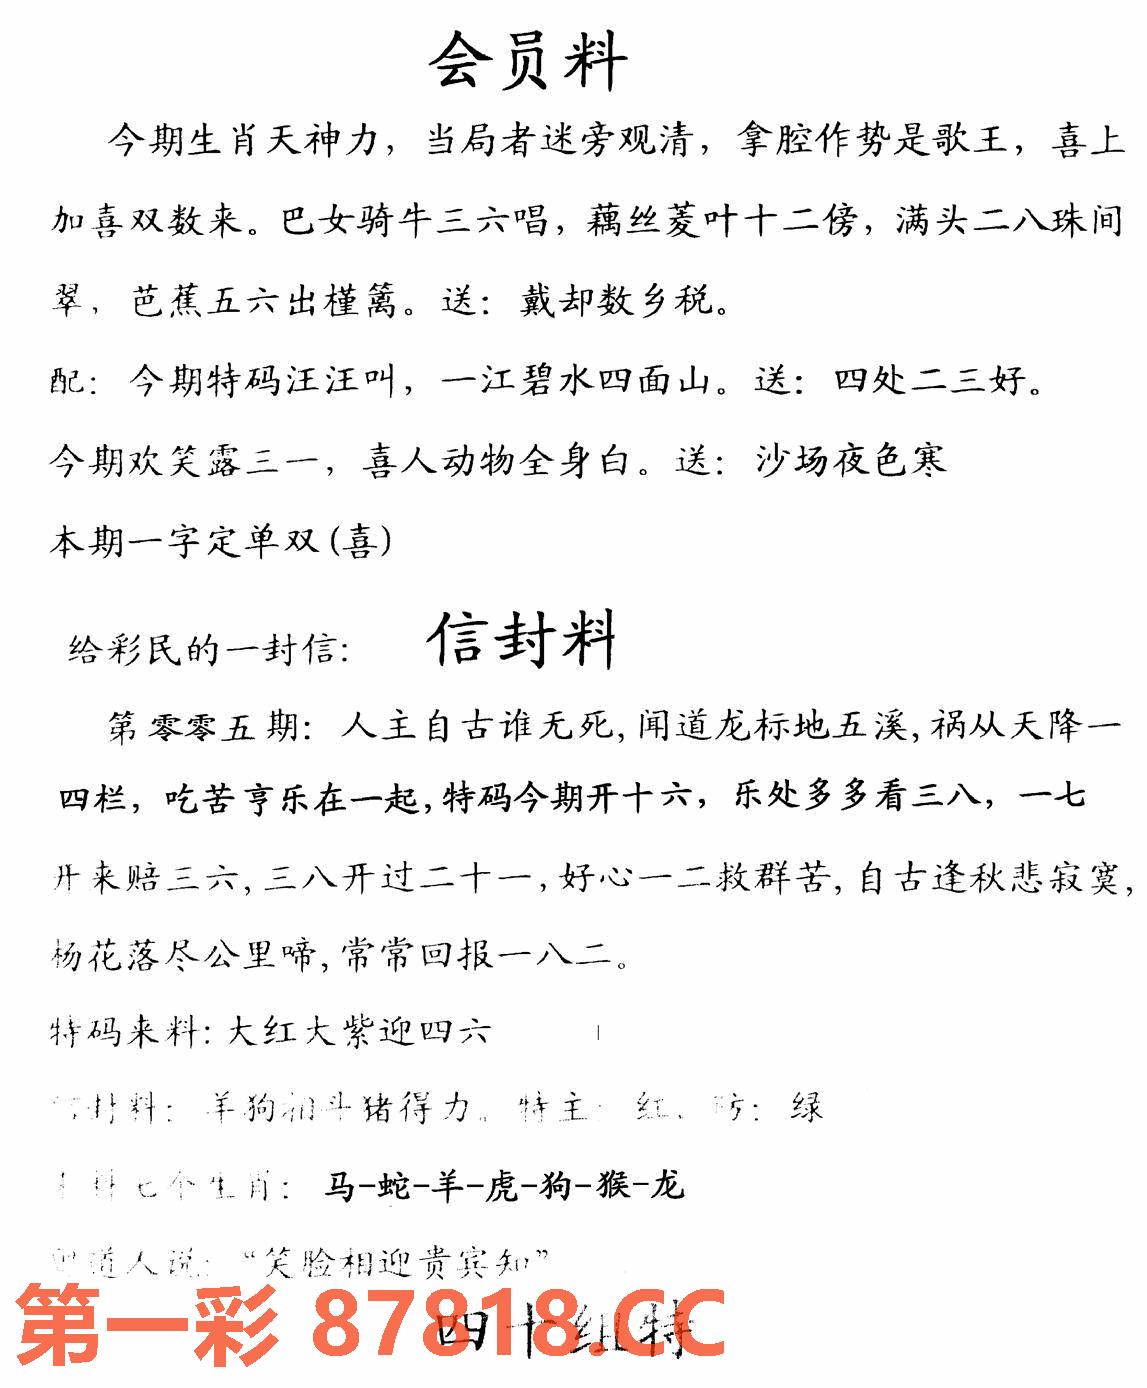 会员料
今期生肖天神力，当局者迷旁观清，拿腔作势是歌王，喜上
加喜双数来。巴女骑牛三六唱，藕丝菱叶十二傍，满头二八珠间
翠，芭蕉五六出槿篱。送：戴却数乡税。
配：今期特码汪汪叫，一江碧水四面山。送：四处二三好。
今期欢笑露三一，喜人动物全身白。送：沙场夜色寒
本期一字定单双(喜)
给彩民的一封信： 信封料
第零零五期：人主自古谁无死,闻道龙标地五溪,祸从天降一
四栏，吃苦亨乐在一起,特码今期开十六，乐处多多看三八，一七
开来赔三六,三八开过二十一,好心一二救群苦,自古逢秋悲寂寞,
杨花落尽公里啼,常常回报一八二。
特码来料:大红大紫迎四六
封料：羊狗相斗猪得力。特主：红、防：绿
七个生肖：马-蛇-羊-虎-狗-猴-龙
道人说：“笑脸相迎贵宾知”
第一彩 87818.CC
四十组特